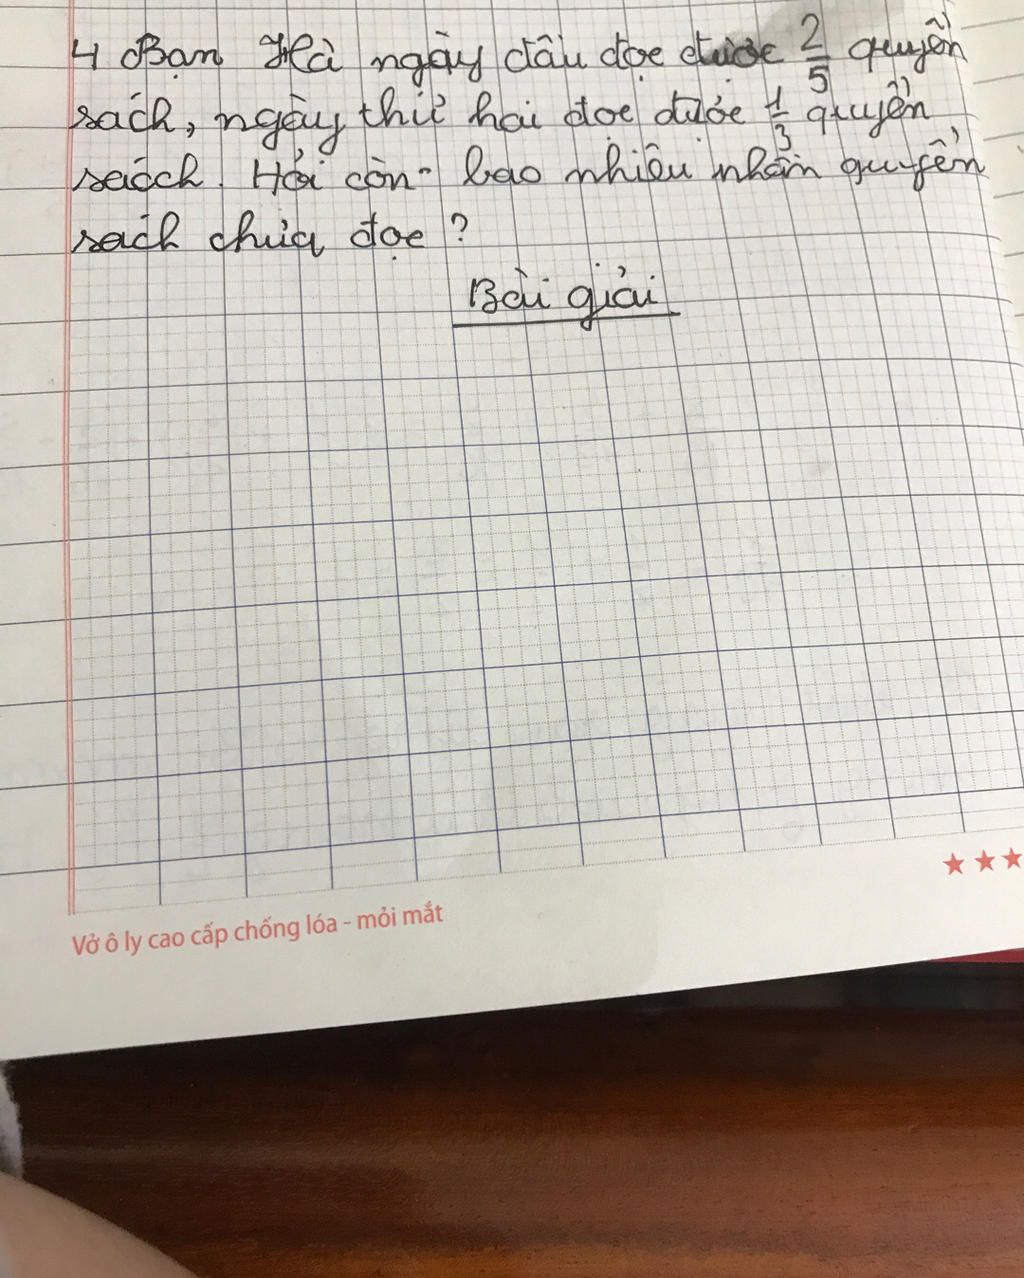 4 Bạn Hà ngày đầu đọc được 2/5 quyển
sách, ngày thứ hai đọc được 1/3 quyển
sách. Hỏi còn bao nhiêu nhần quyển
sách chưa đọc ?
Bài giải
Vở ô ly cao cấp chống lóa - mỏi mắt